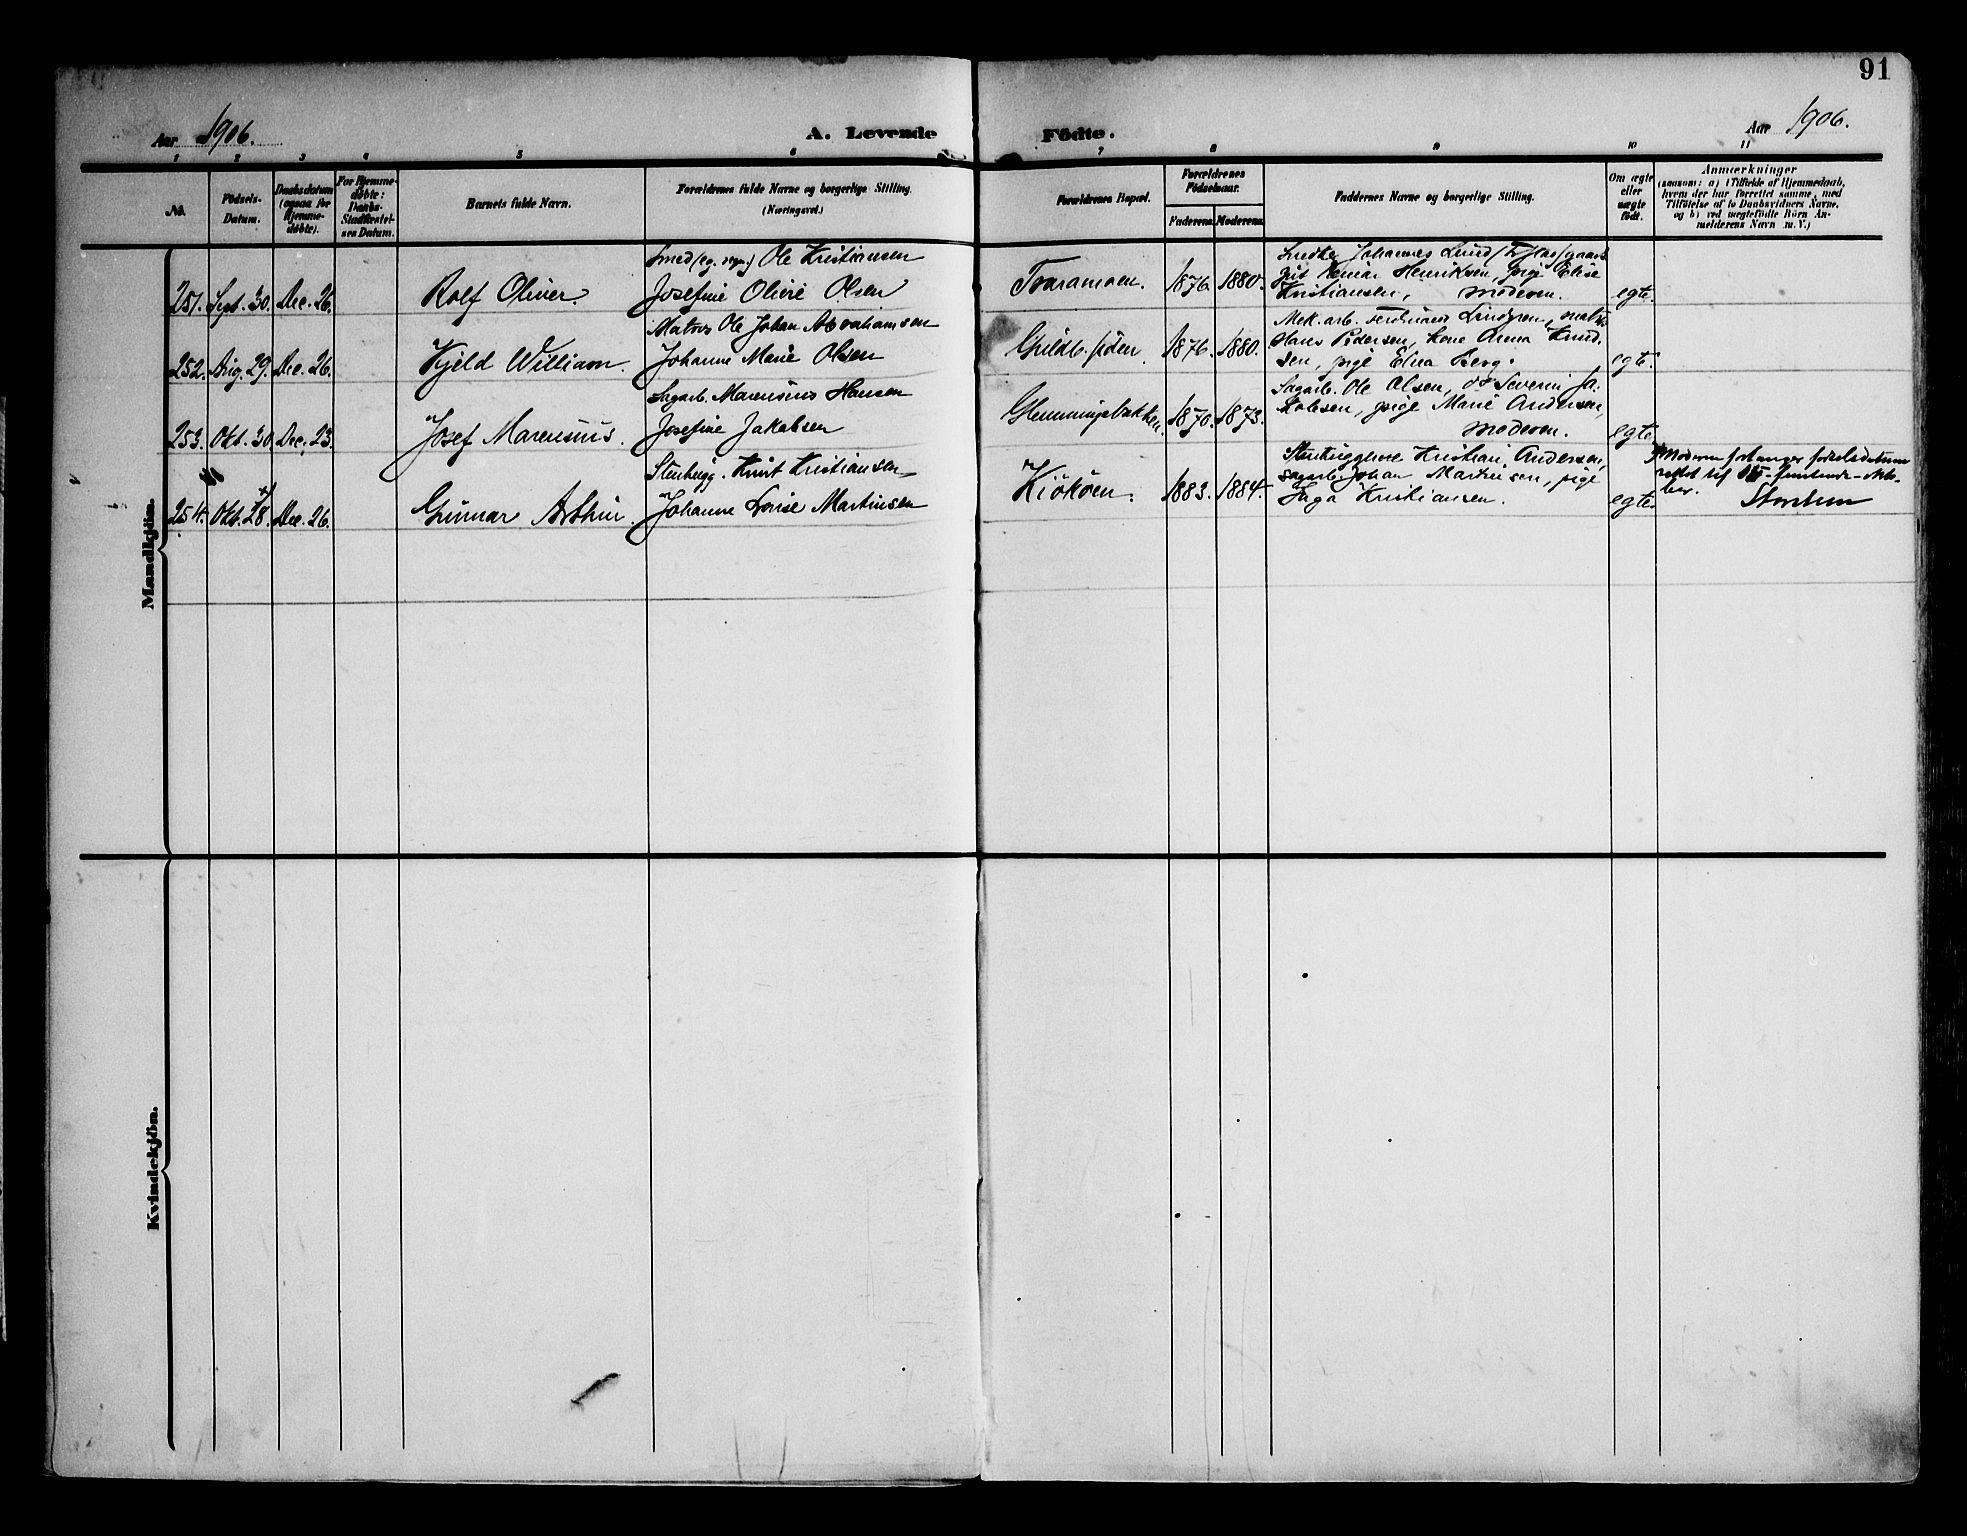 91
Aar 1906.
A. Levende Födte.
Aar 1906.
1 2 3 4 5 6 7 8 9 10 11
No.
Födsels-
Datum.
Daabsdatum
(ogsaa for
Hjemme-
døbte).
For Hjemme-
döbte:
Daabs-
Stadfæstel-
ses Datum.
Barnets fulde Navn.
Forældrenes fulde Navne og borgerlige Stilling.
(Næringsvei.)
Forældrenes Bopæl.
Forældrenes
Födselsaar.
Faderens. Moderens.
Faddernes Navne og borgerlige Stilling.
Om ægte
eller
uægte
födt.
Anmærkninger
(saasom: a) i Tilfælde af Hjemmedaab,
hvem der har forrettet samme, med
Tilföielse af to Daabsvidners Navne,
og b) ved uægtefödte Börn An-
melderens Navn m. V.)
Mandkjön.
251. Sept. 30. Dec. 26.
Rolf Oliver
Smed (eg. ) Ole Kristiansen
Josefine Olive Olsen
Taramoen.
1876. 1880.
Snedker Johannes Lund
Henriksen, pige Elise
Kristiansen, moderen.
egte.
252. Aug. 29. Dec. 26.
Kjeld William.
Matros Ole Johan Abrahamsen
Johanne Marie Olsen
1876. 1880.
Mek. arb. Ferdinand Lindgren,
Hans Pedersen, kone Anna Knud-
sen, pige Elna Berg.
egte.
253. Okt. 30. Dec. 23.
Josef Marensius.
Sagarb. Marensius Hansen
Josefine Jakobsen
Glemmingebakken.
1870. 1873.
Sagarb. Ole Olsen, do Severin Ja-
kobsen, pige Marie Andersen,
moderen.
egte.
254. Okt. 28. x) Dec. 26.
Gunnar Arthur.
Stenhugg. Knut Kristiansen
Johanne Lovise Martinsen
Kiøkøen.
1883. 1884.
Stenhuggerne Kristian Andersen,
sagarb. Johan Martinsen, pige
Inga Kristiansen.
egte.
x) Moderen forlanger fødselsdatum
rettet til
ber.
Kvindekjön.